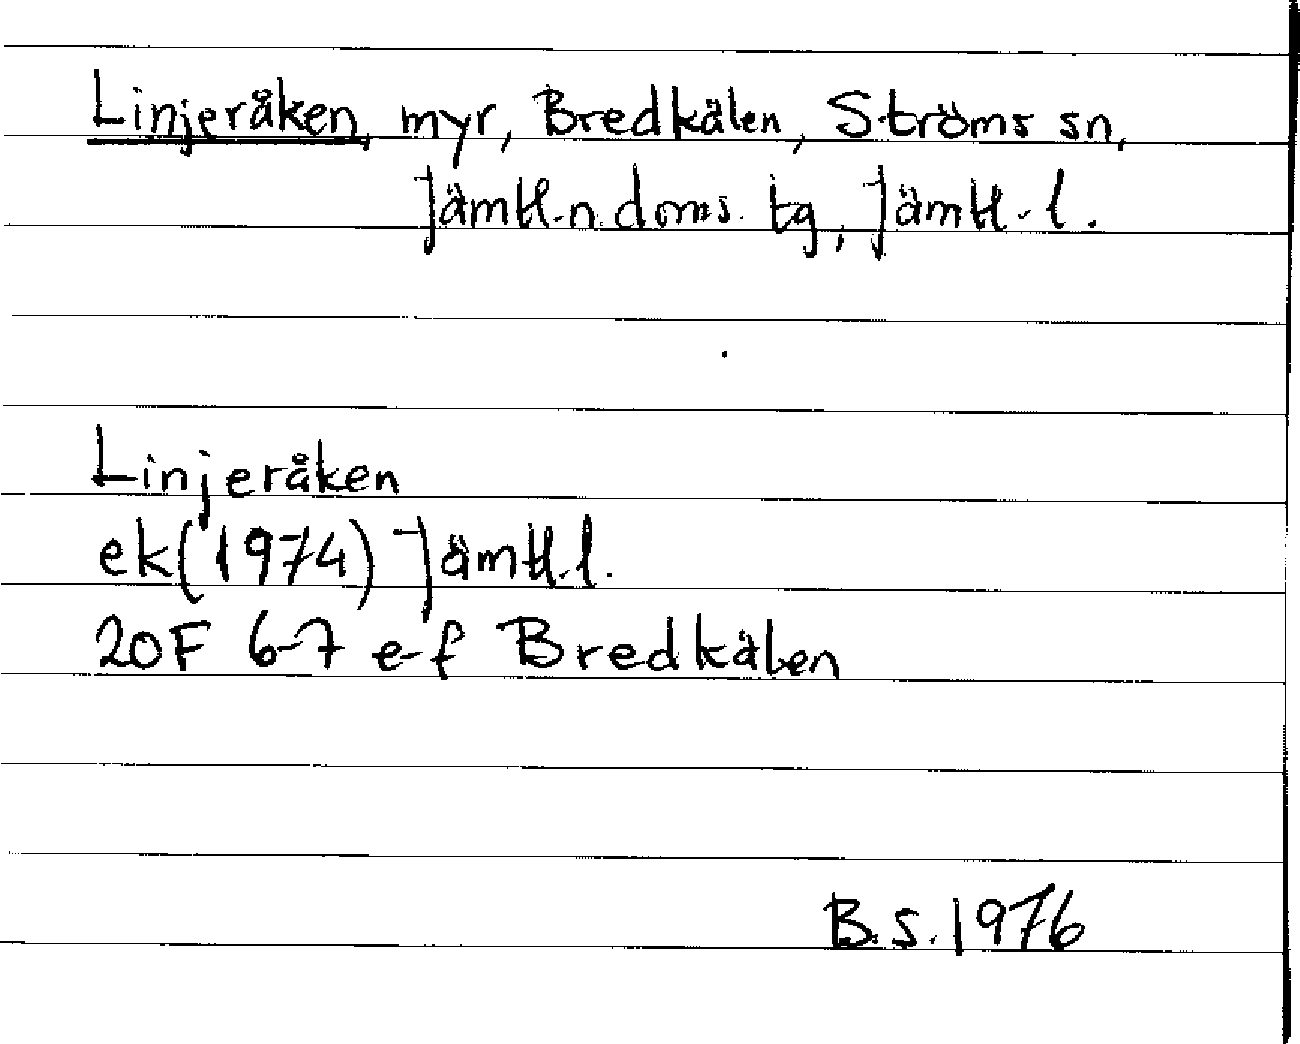 Linjeråken, myr, Bredkälen, Ströms sn,
Jämtl.n. doms. tg, Jämtl. l.
Linjeråken
ek(1974) Jämtl.l.
20F 6-7 e-f Bredkälen
B.S. 1976